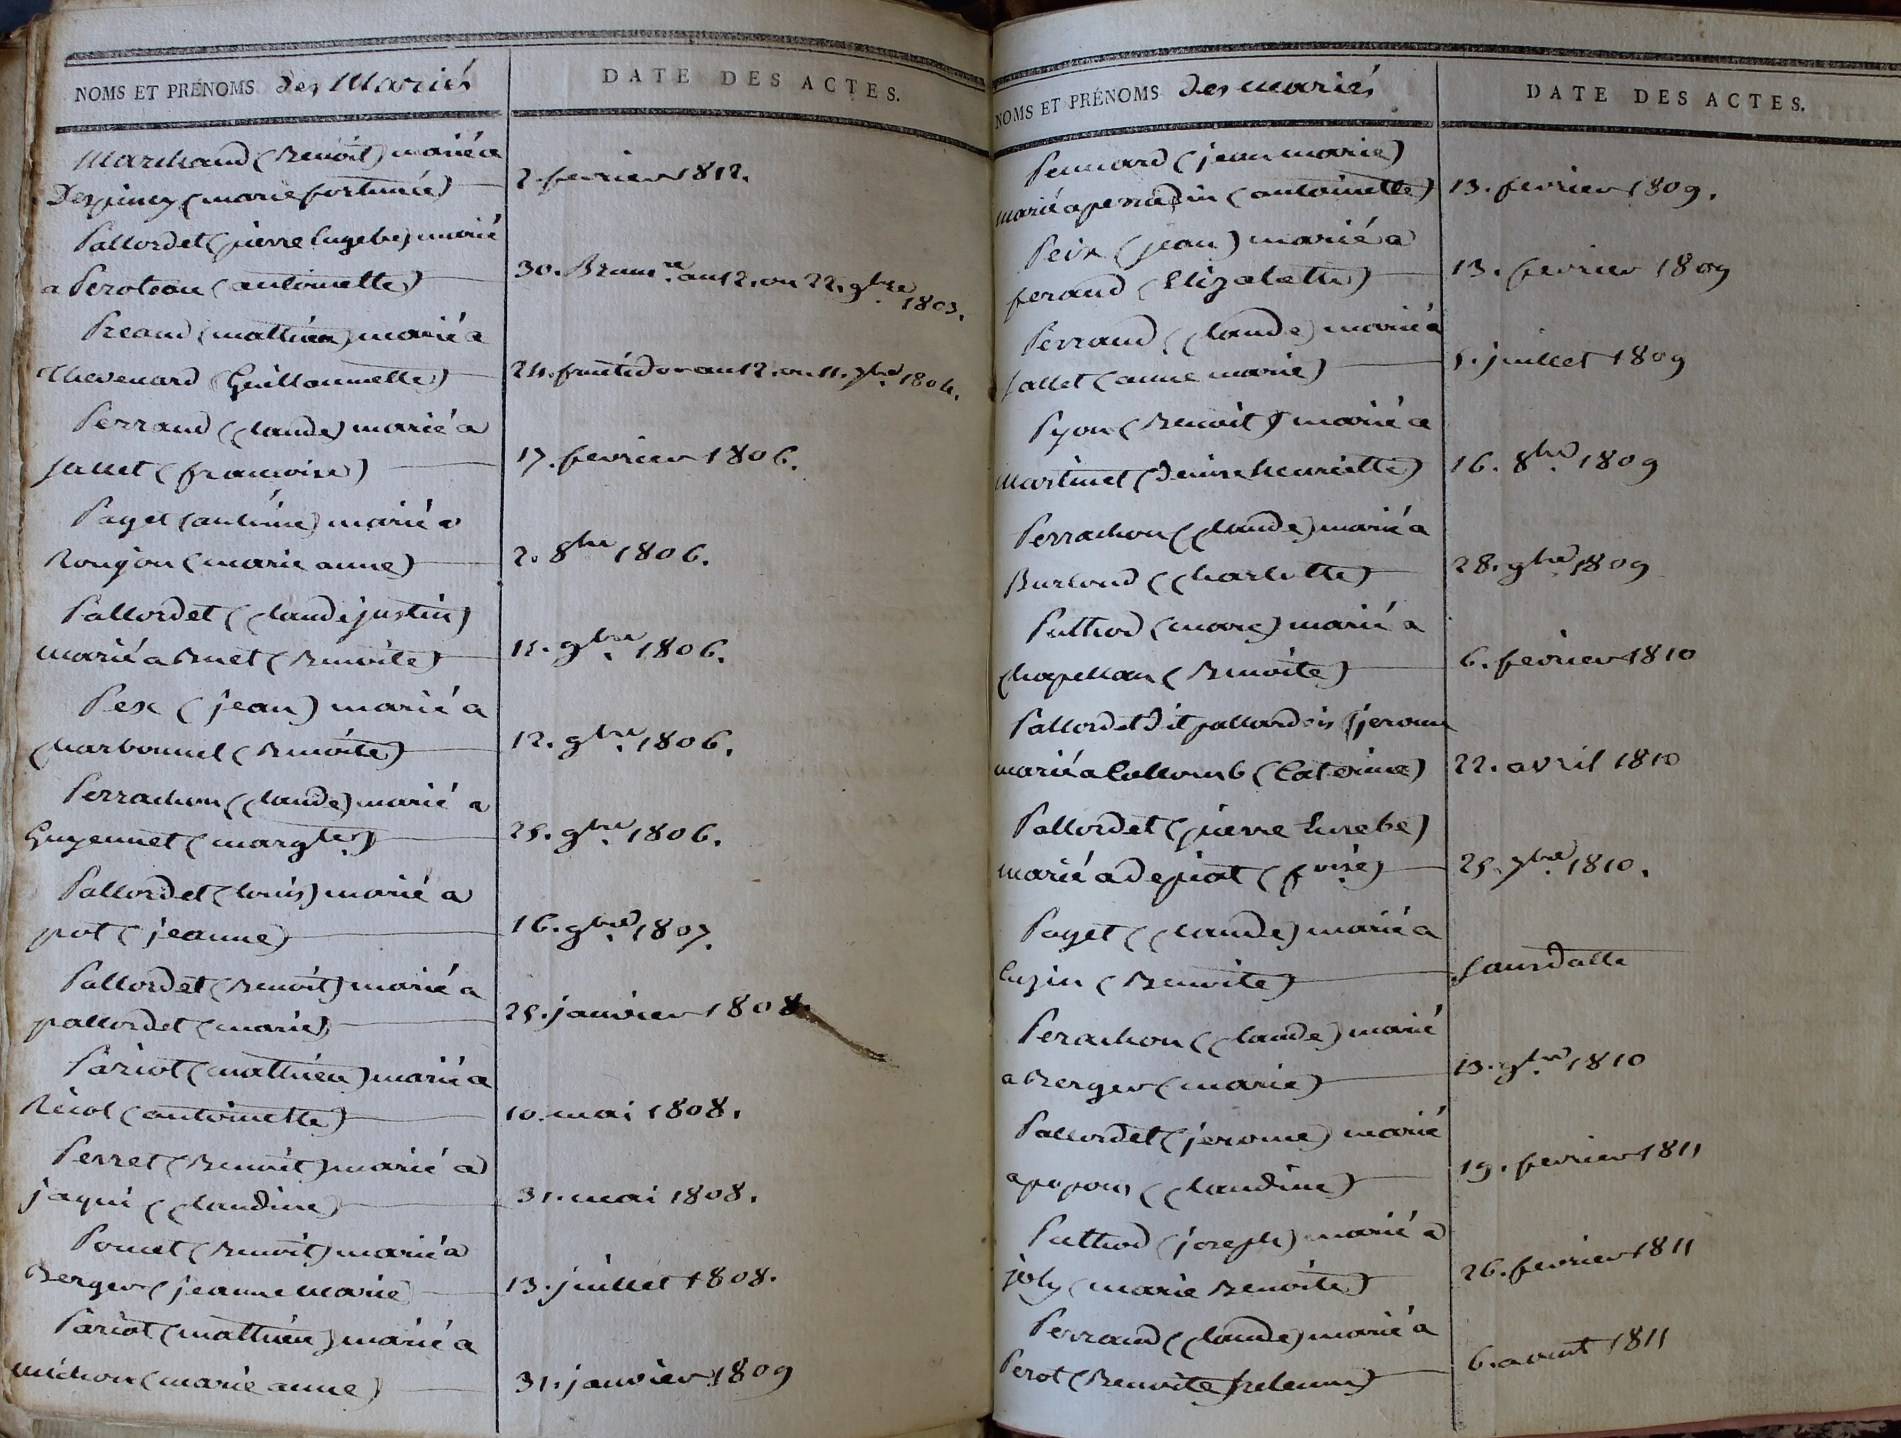 NOMS ET PRÉNOMS des Mariés
DATE DES ACTES.
Marchand (Benoit) marié a
Despiney (marie fortunée)
2. fevrier 1812.
Pallordet (pierre Eugebe) marié
a Peroteau (antoinette)
30. Brum.re an 12. ou 22. 9bre
1803.
Preaud (mathieu) marié a
thevenard (Guillaumette)
24. fructidor an 12. ou 11. 7bre 1804.
Perraud (Claude) marié a
jallet (francoise)
17. fevrier 1806.
Paget (antoine) marié a
Roujon (marie anne)
2. 8bre 1806.
Pallordet (Claude justin)
marié a Buet (Benoite)
11. 9bre 1806.
Pex (jean) marié a
Charbonnel (Benoite)
12. 9bre 1806.
Perrachon (Claude) marié a
Guyennet (margte)
25. 9bre 1806.
Pallordet (louis) marié a
pot (jeanne)
16. 9bre 1807.
Pallordet (Benoit) marié a
pallordet (marie)
25. janvier 1808.
Pariot (mathieu) marié a
Nicol (antoinette)
10. mai 1808.
Perret (Benoit) marié a
jaqui (Claudine)
31. mai 1808.
Pornet (Benoit) marié a
Berger (jeanne marie)
13. juillet 1808.
Pariot (mathieu) marié a
michon (marie anne)
31. janvier 1809
NOMS ET PRÉNOMS des mariés
DATE DES ACTES.
(jean marie)
marié a (antoinette)
13. fevrier 1809.
Peix (jean) marié a
feraud (Elizabeth)
13. fevrier 1809
Perraud (Claude) marié a
jallet (anne marie)
5. juillet 1809
Pyon (Benoit) marié a
Martinet (Denise henriette)
16. 8bre 1809
Perrachon (Claude) marié a
Burloud (Charlotte)
28. 9bre 1809
Puthod (marc) marié a
Chapellan (Benoite)
6. fevrier 1810
Pallordet dit pallordois (jerome
marié a Collomb (Caterine)
22. avril 1810
Pallordet (pierre Eusebe)
marié a Depiat (fcoise)
25. 7bre 1810.
Paget (Claude) marié a
luzin (Benoite)
sans datte
Perachon (Claude) marié
a Berger (marie)
13. 9bre 1810
Pallordet (jerome) marié
a popon (Claudine)
19. fevrier 1811
Puthod (joseph) marié a
joly (marie Benoite)
26. fevrier 1811
Perraud (Claude) marié a
Perot (Benoite
6. aout 1811